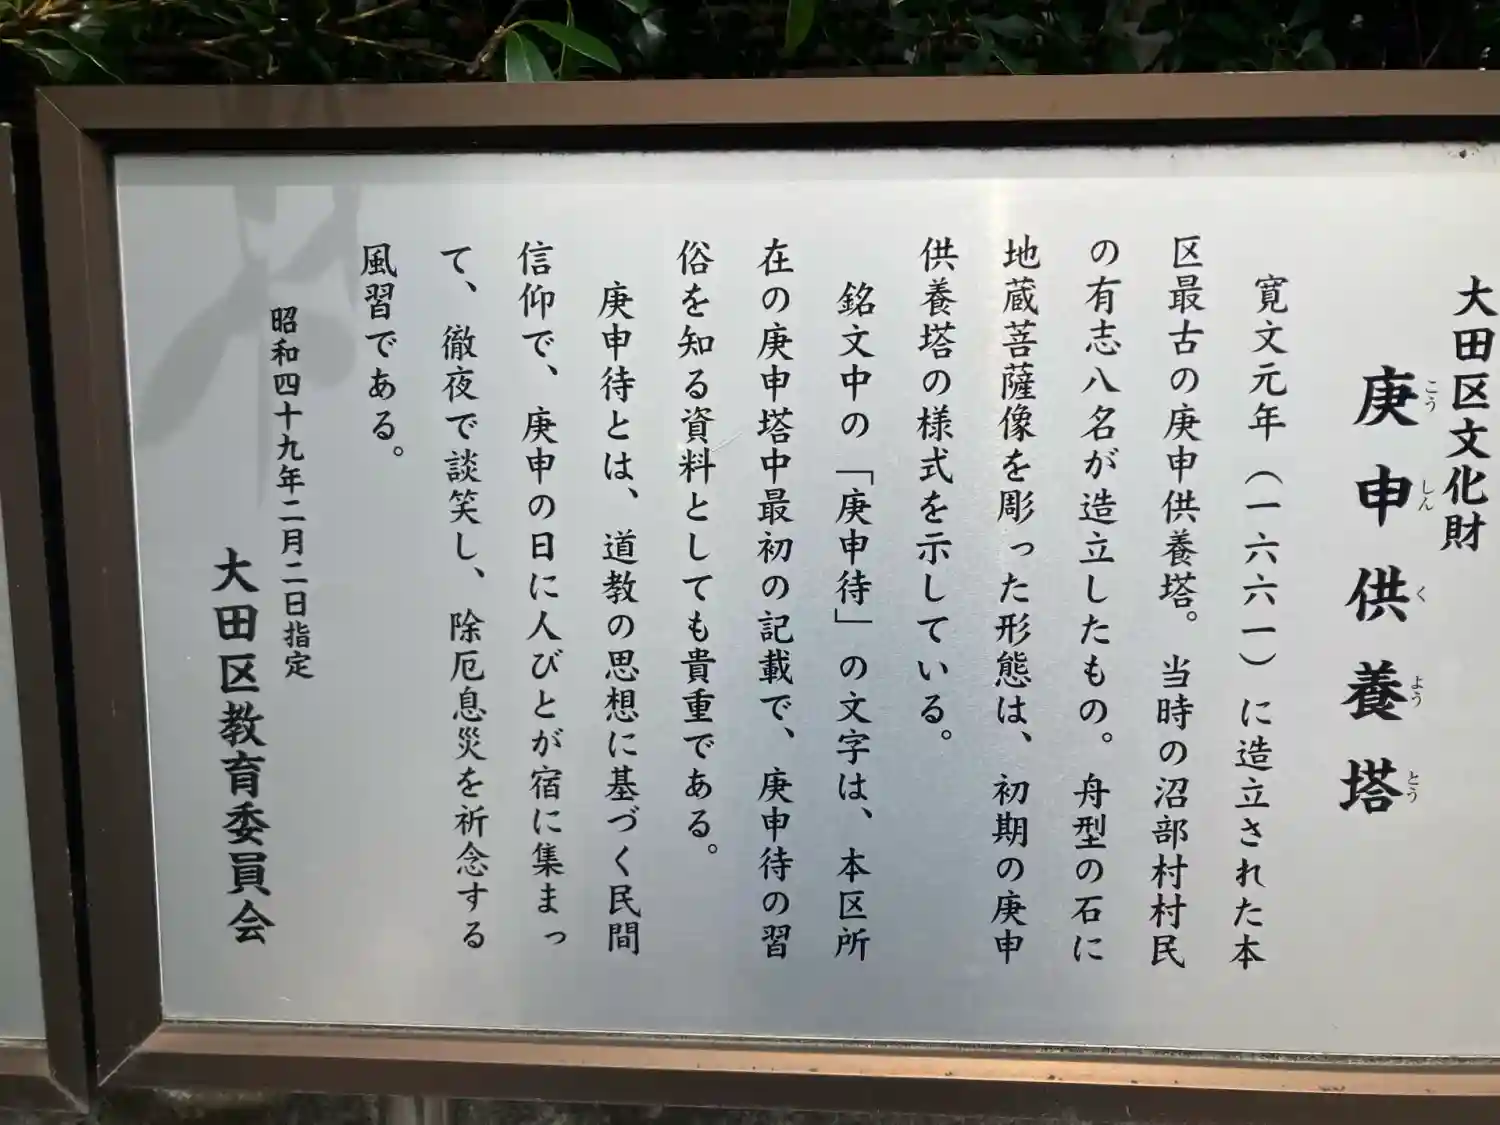 大田区文化財
庚申供養塔
こうしんくようとう
寛文元年（一六六一）に造立された本
区最古の庚申供養塔。当時の沼部村村民
の有志八名が造立したもの。舟型の石に
地蔵菩薩像を彫った形態は、初期の庚申
供養塔の様式を示している。
銘文中の「庚申待」の文字は、本区所
在の庚申塔中最初の記載で、庚申待の習
俗を知る資料としても貴重である。
庚申待とは、道教の思想に基づく民間
信仰で、庚申の日に人びとが宿に集まっ
て、徹夜で談笑し、除厄息災を祈念する
風習である。
昭和四十九年二月二日指定
大田区教育委員会